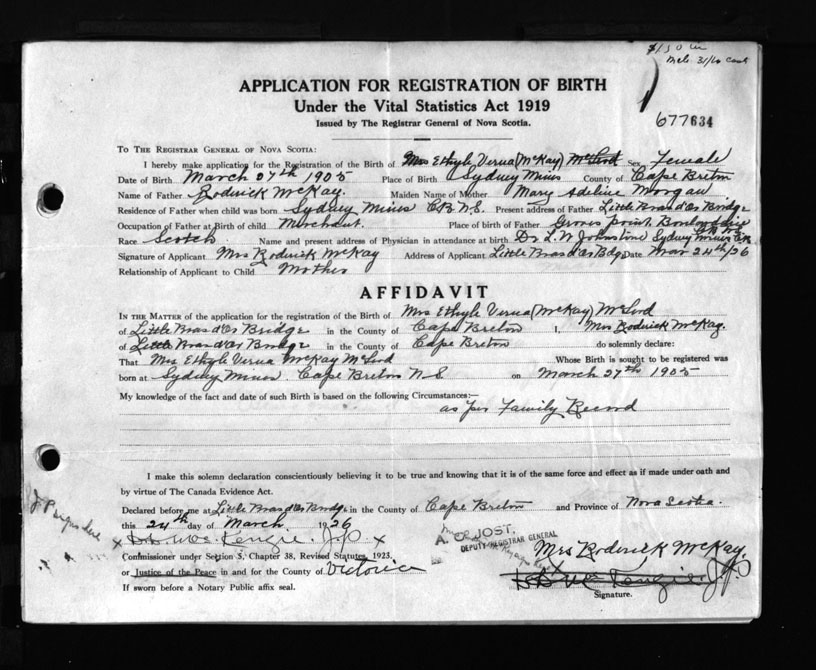 $1.50
APPLICATION FOR REGISTRATION OF BIRTH
Under the Vital Statistics Act 1919
Issued by The Registrar General of Nova Scotia.
677634
TO THE REGISTRAR GENERAL OF NOVA SCOTIA:
I hereby make application for the Registration of the Birth of Mrs Ethyle Verna (McKay) McLeod Sex Female
Date of Birth March 27th 1905 Place of Birth Sydney Mines County of Cape Breton
Name of Father Roderick McKay. Maiden Name of Mother Mary Adeline Morgan
Residence of Father when child was born Sydney Mines CB N.S. Present address of Father Little Bras d'Or Bridge
Occupation of Father at Birth of child Merchant. Place of birth of Father Groves Point, Boularderie
Race Scotch Name and present address of Physician in attendance at birth Dr L.W Johnstone Sydney Mines CB
Signature of Applicant Mrs Roderick McKay Address of Applicant Little Bras d'Or Bdge Date Mar 24th/26
Relationship of Applicant to Child Mother
AFFIDAVIT
IN THE MATTER of the application for the registration of the Birth of Mrs Ethyle Verna (McKay) McLeod
of Little Bras d'Or Bridge in the County of Cape Breton I, Mrs Roderick McKay.
of Little Bras d'Or Bridge in the County of Cape Breton do solemnly declare:
That Mrs Ethyle Verna McKay McLeod Whose Birth is sought to be registered was
born at Sydney Mines. Cape Breton N S on March 27th 1905
My knowledge of the fact and date of such Birth is based on the following Circumstances:—
as per Family Record
I make this solemn declaration conscientiously believing it to be true and knowing that it is of the same force and effect as if made under oath and
by virtue of The Canada Evidence Act.
Declared before me at Little Bras d'Or Bridge in the County of Cape Breton and Province of Nova Scotia.
this 24th day of March 1926
J P sign here
x McKenzie. J.P. x
A. O. JOST.
DEPUTY REGISTRAR GENERAL
Mrs Roderick McKay.
Commissioner under Section 5, Chapter 38, Revised Statutes, 1923.
or Justice of the Peace in and for the County of Victoria
McKenzie J.P
Signature.
If sworn before a Notary Public affix seal.